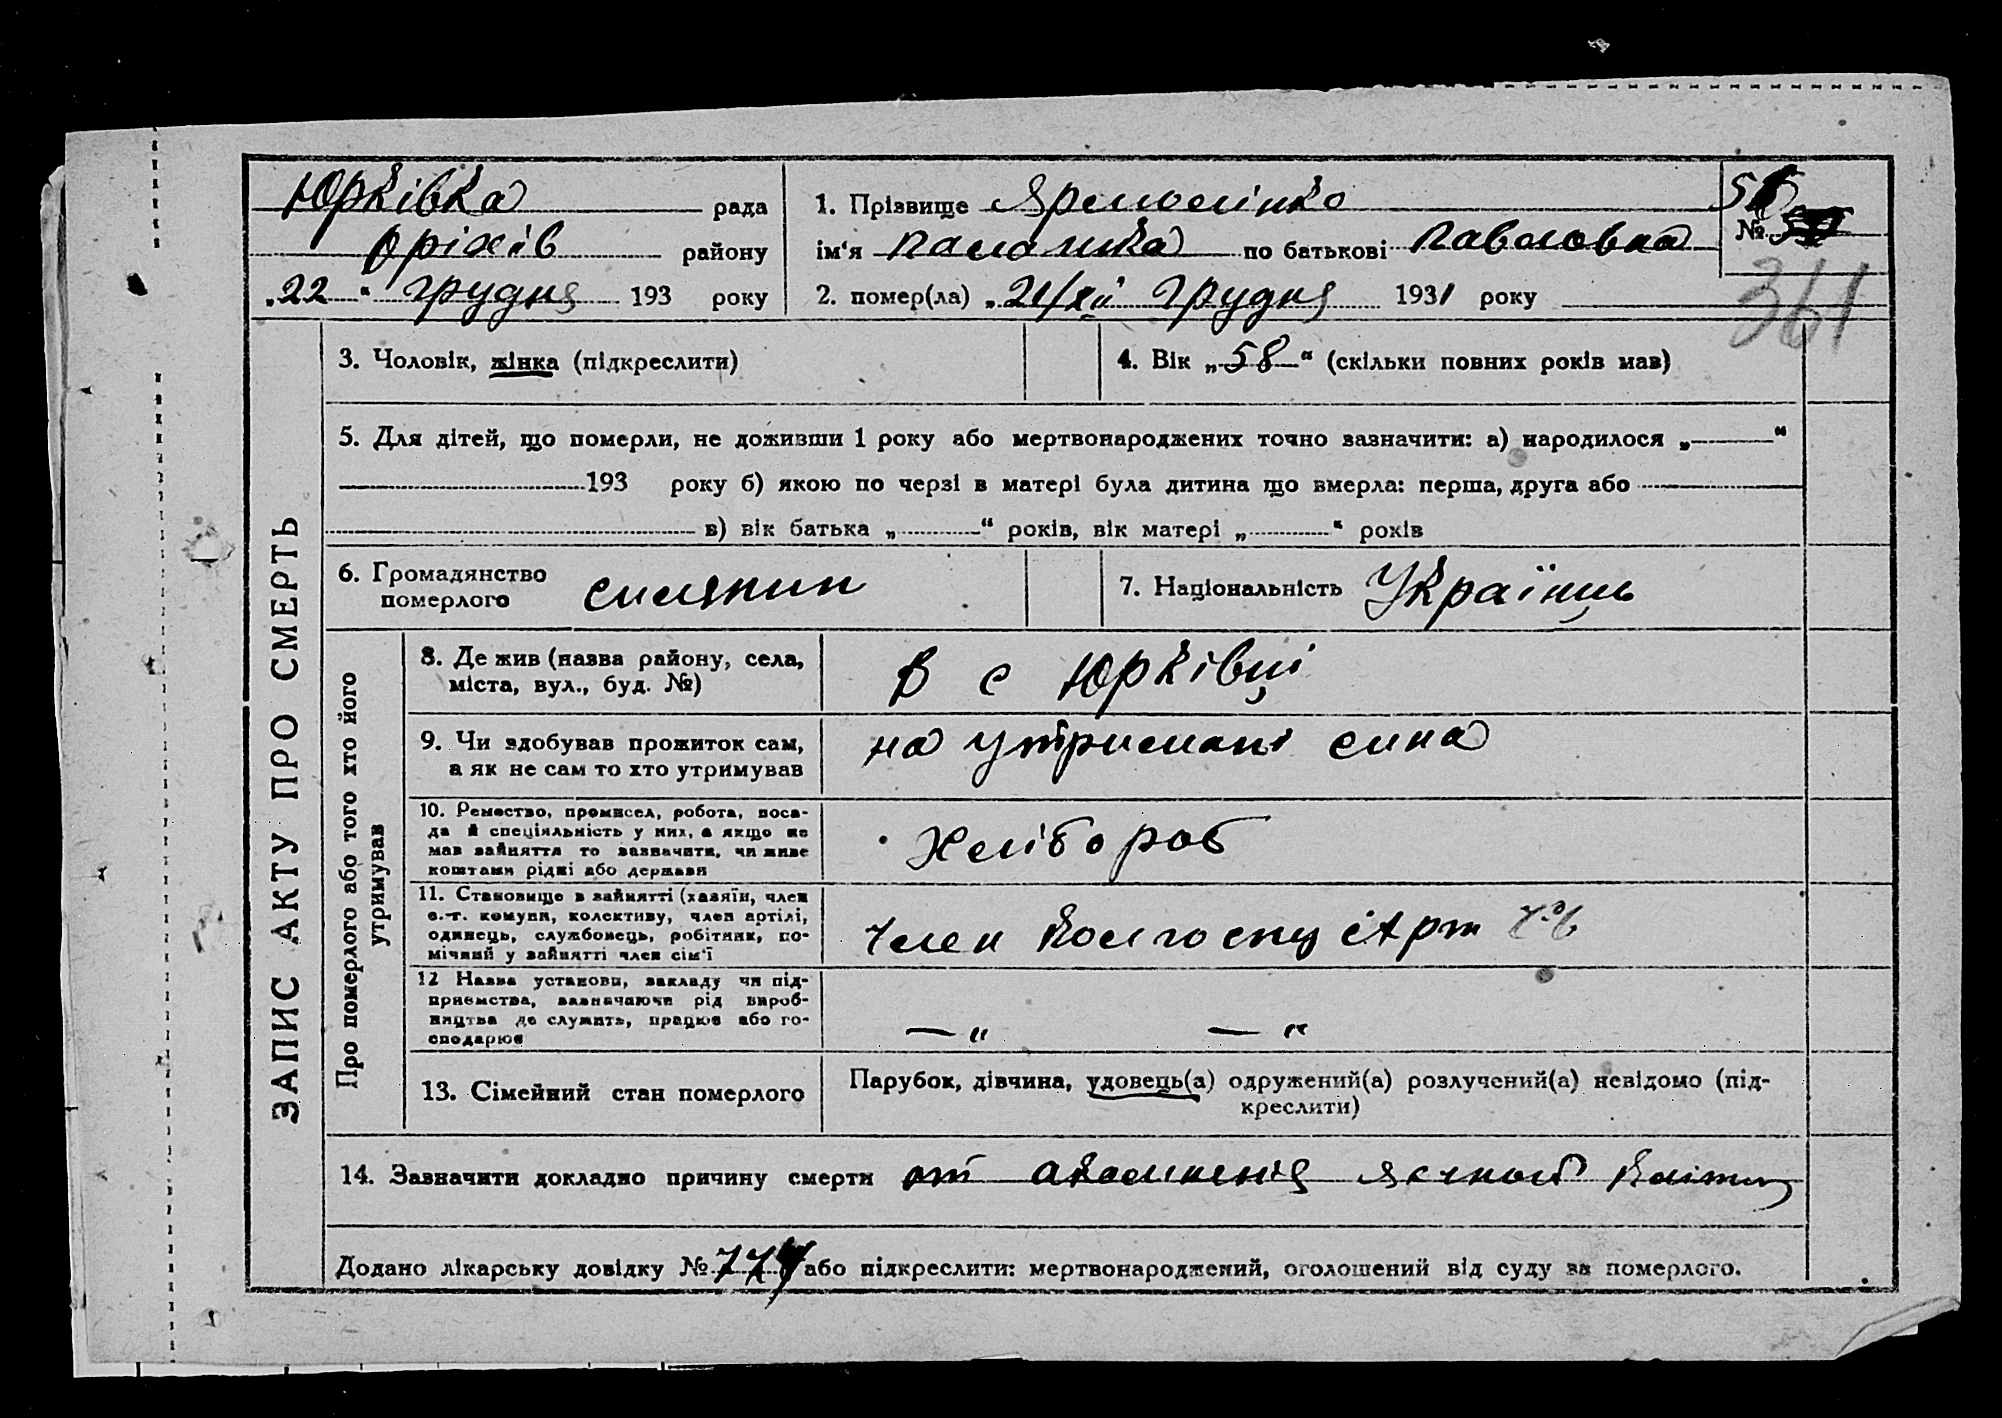 Юрківка рада
Оріхів району
„22“ грудня 193 року
1. Прізвище
ім'я Паламка по батькові Павловна
2. помер(ла) „21/XII Грудня 1931 року
№
361
ЗАПИС АКТУ ПРО СМЕРТЬ
3. Чоловік, жінка (підкреслити)
4. Вік „58“ (скільки повних років мав)
5. Для дітей, що померли, не доживши 1 року або мертвонароджених точно зазначити: а) народилося „ “
193 року б) якою по черзі в матері була дитина що вмерла: перша, друга або
в) вік батька „ “ років, вік матері „ “ років
6. Громадянство
померлого селянин
7. Національність Українць
Про померлого або того хто його
утримував
8. Де жив (назва району, села,
міста, вул., буд. №)
В с Юрківці
9. Чи здобував прожиток сам,
а як не сам то хто утримував
на утримані сина
10. Ремество, промисел, робота, поса-
да й спеціяльність у них, а якщо не
мав зайняття то зазначити, чи живе
коштами рідні або держави
Хлібороб
11. Становище в зайнятті (хазяїн, член
с.-г. комуни, колективу, член артілі,
одинець, службовець, робітник, по-
мічний у зайнятті член сім'ї
Член колгоспу
12 Назва установи, закладу чи під-
приємства, зазначаючи рід вироб-
ництва де служить, працює або го-
сподарює
— „ — “
13. Сімейний стан померлого
Парубок, дівчина, удовець(а) одружений(а) розлучений(а) невідомо (під-
креслити)
14. Зазначити докладно причину смерти от
Додано лікарську довідку № або підкреслити: мертвонароджений, оголошений від суду за померлого.